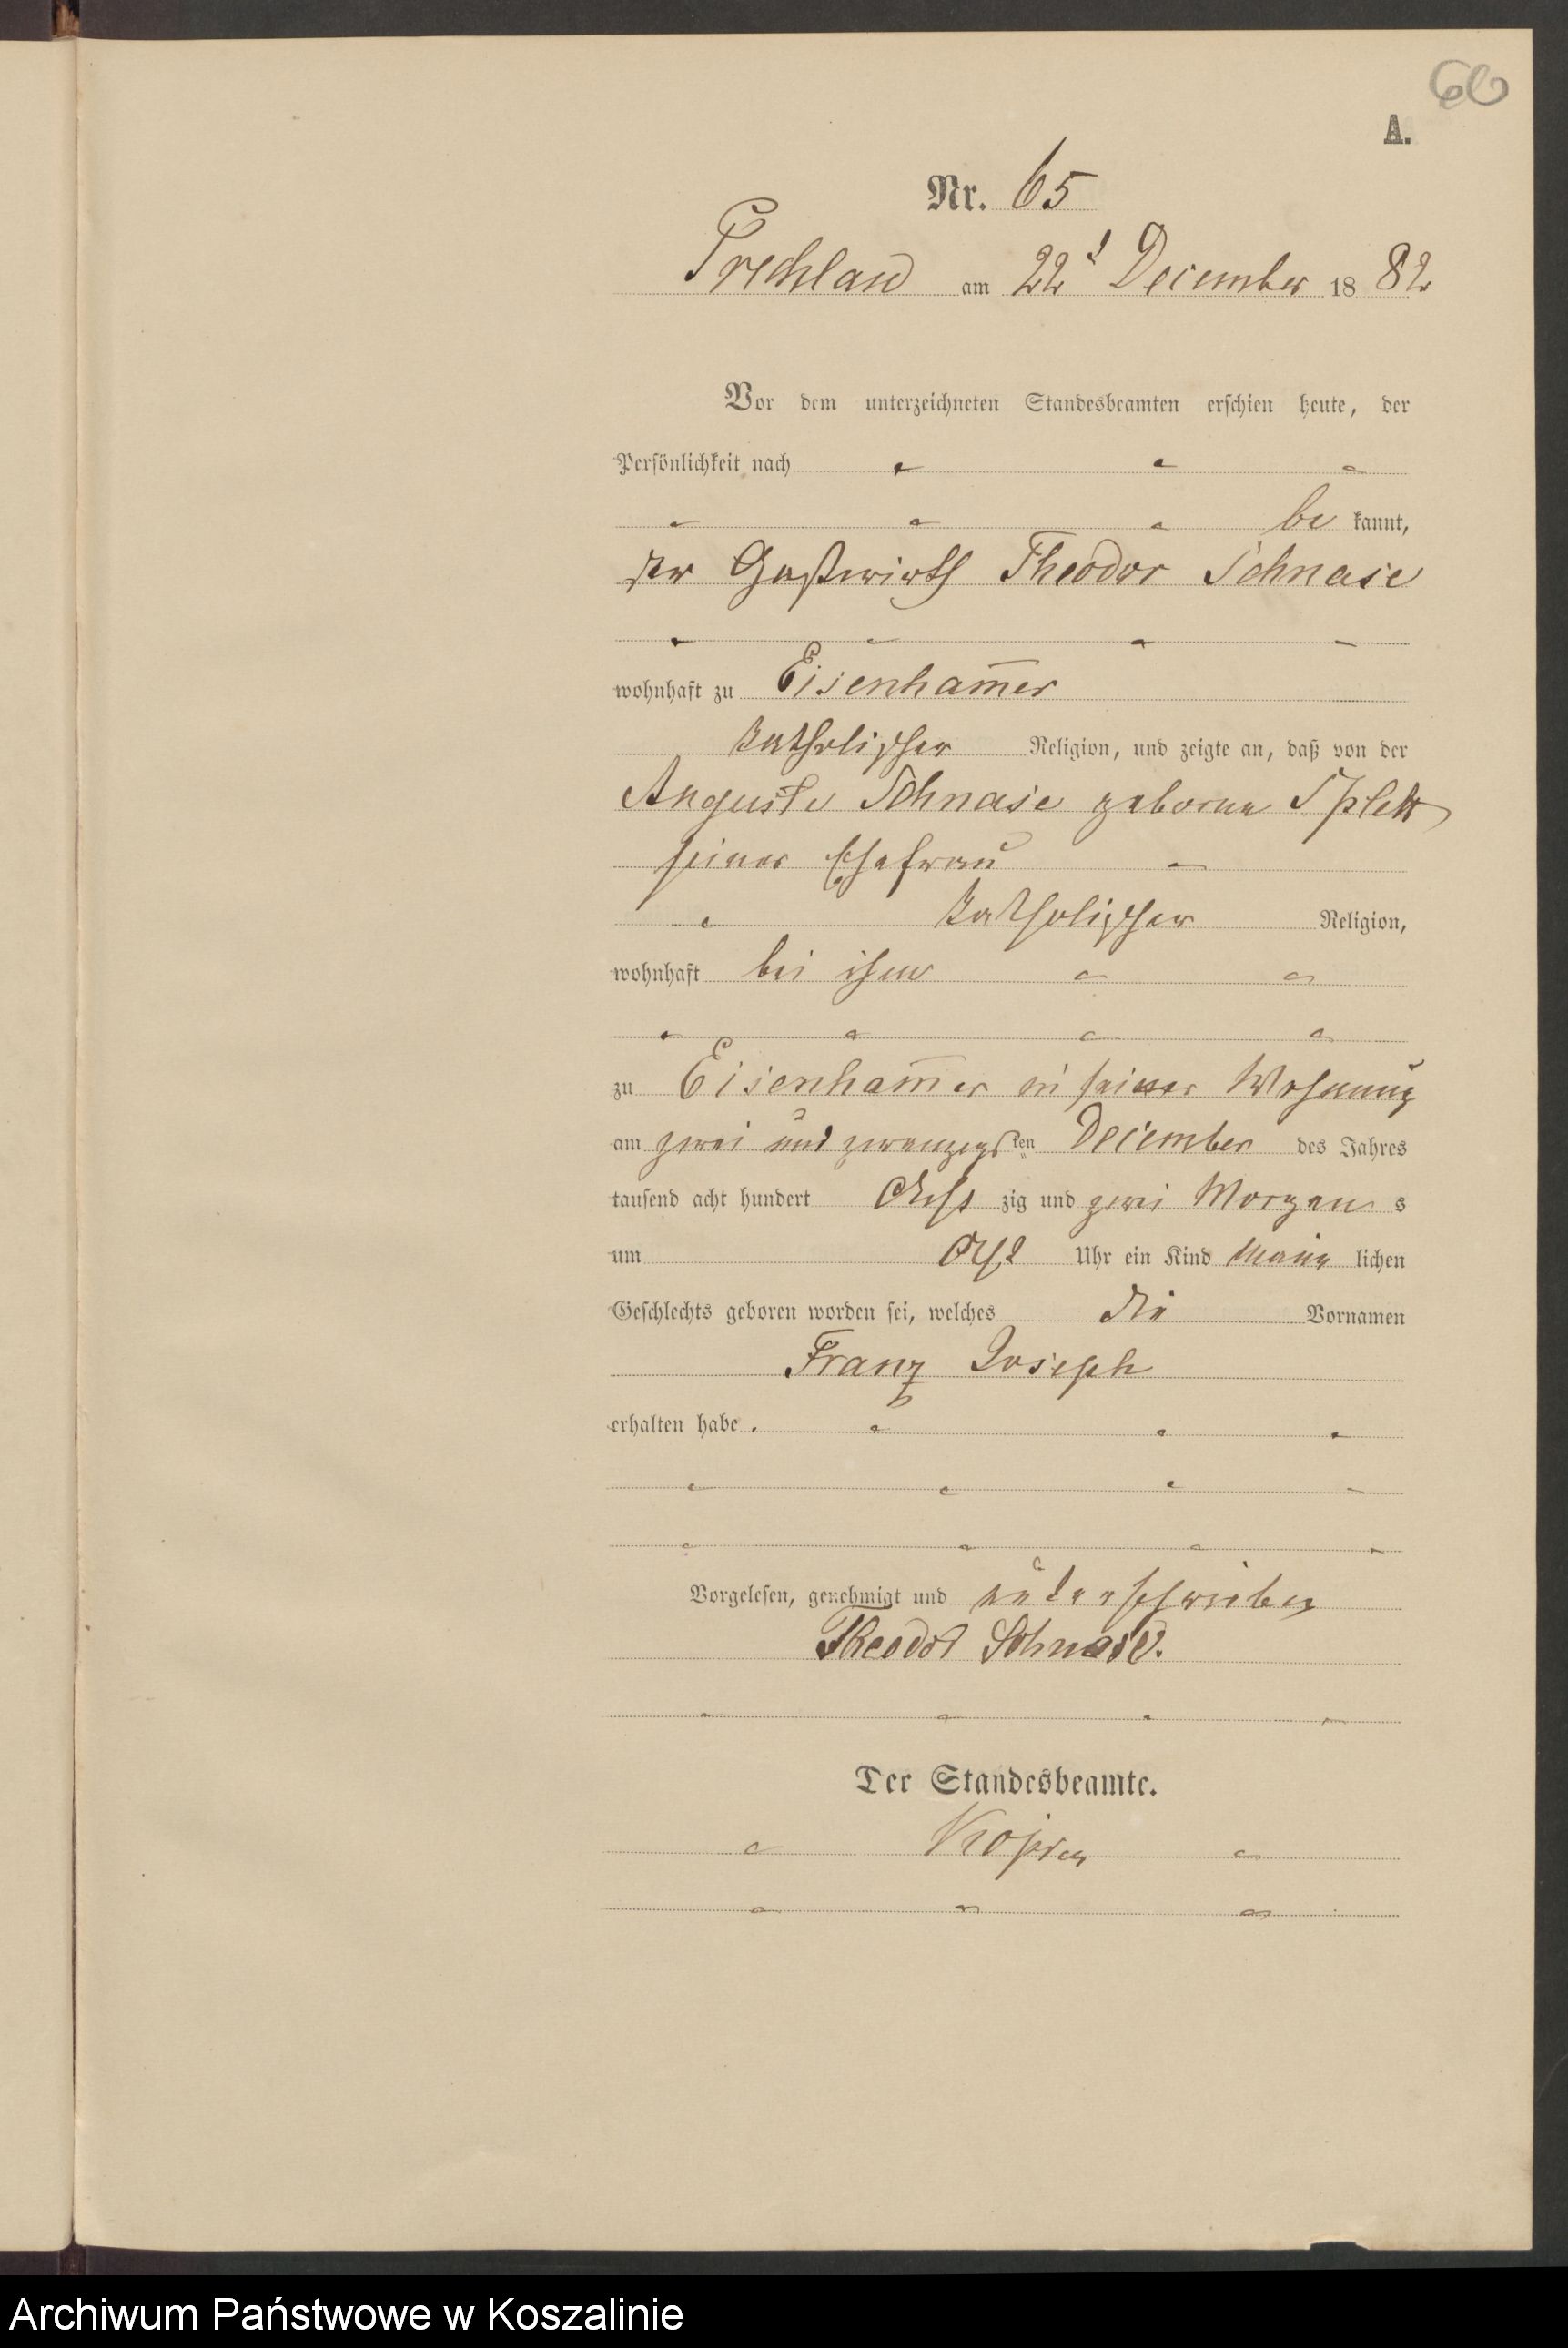 66
A.
Nr. 65
Prechlau am 22t December 1882
Vor dem unterzeichneten Standesbeamten erschien heute, der
Persönlichkeit nach
be kannt,
der Gastwirth Theodor Schnase
wohnhaft zu Eisenham̅er
katholischer Religion, und zeigte an, daß von der
Auguste Schnase geborne Splett
seiner Ehefrau
katholischer Religion,
wohnhaft bei ihm
zu Eisenham̅er in seiner Wohnung
am zwei und zwanzigsten December des Jahres
tausend acht hundert acht zig und zwei Morgens
um acht Uhr ein Kind männ lichen
Geschlechts geboren worden sei, welches die Vornamen
Franz Joseph
erhalten habe.
Vorgelesen, genehmigt und unterschrieben
Theodor Schnase.
Der Standesbeamte.
Archiwum Państwowe w Koszalinie